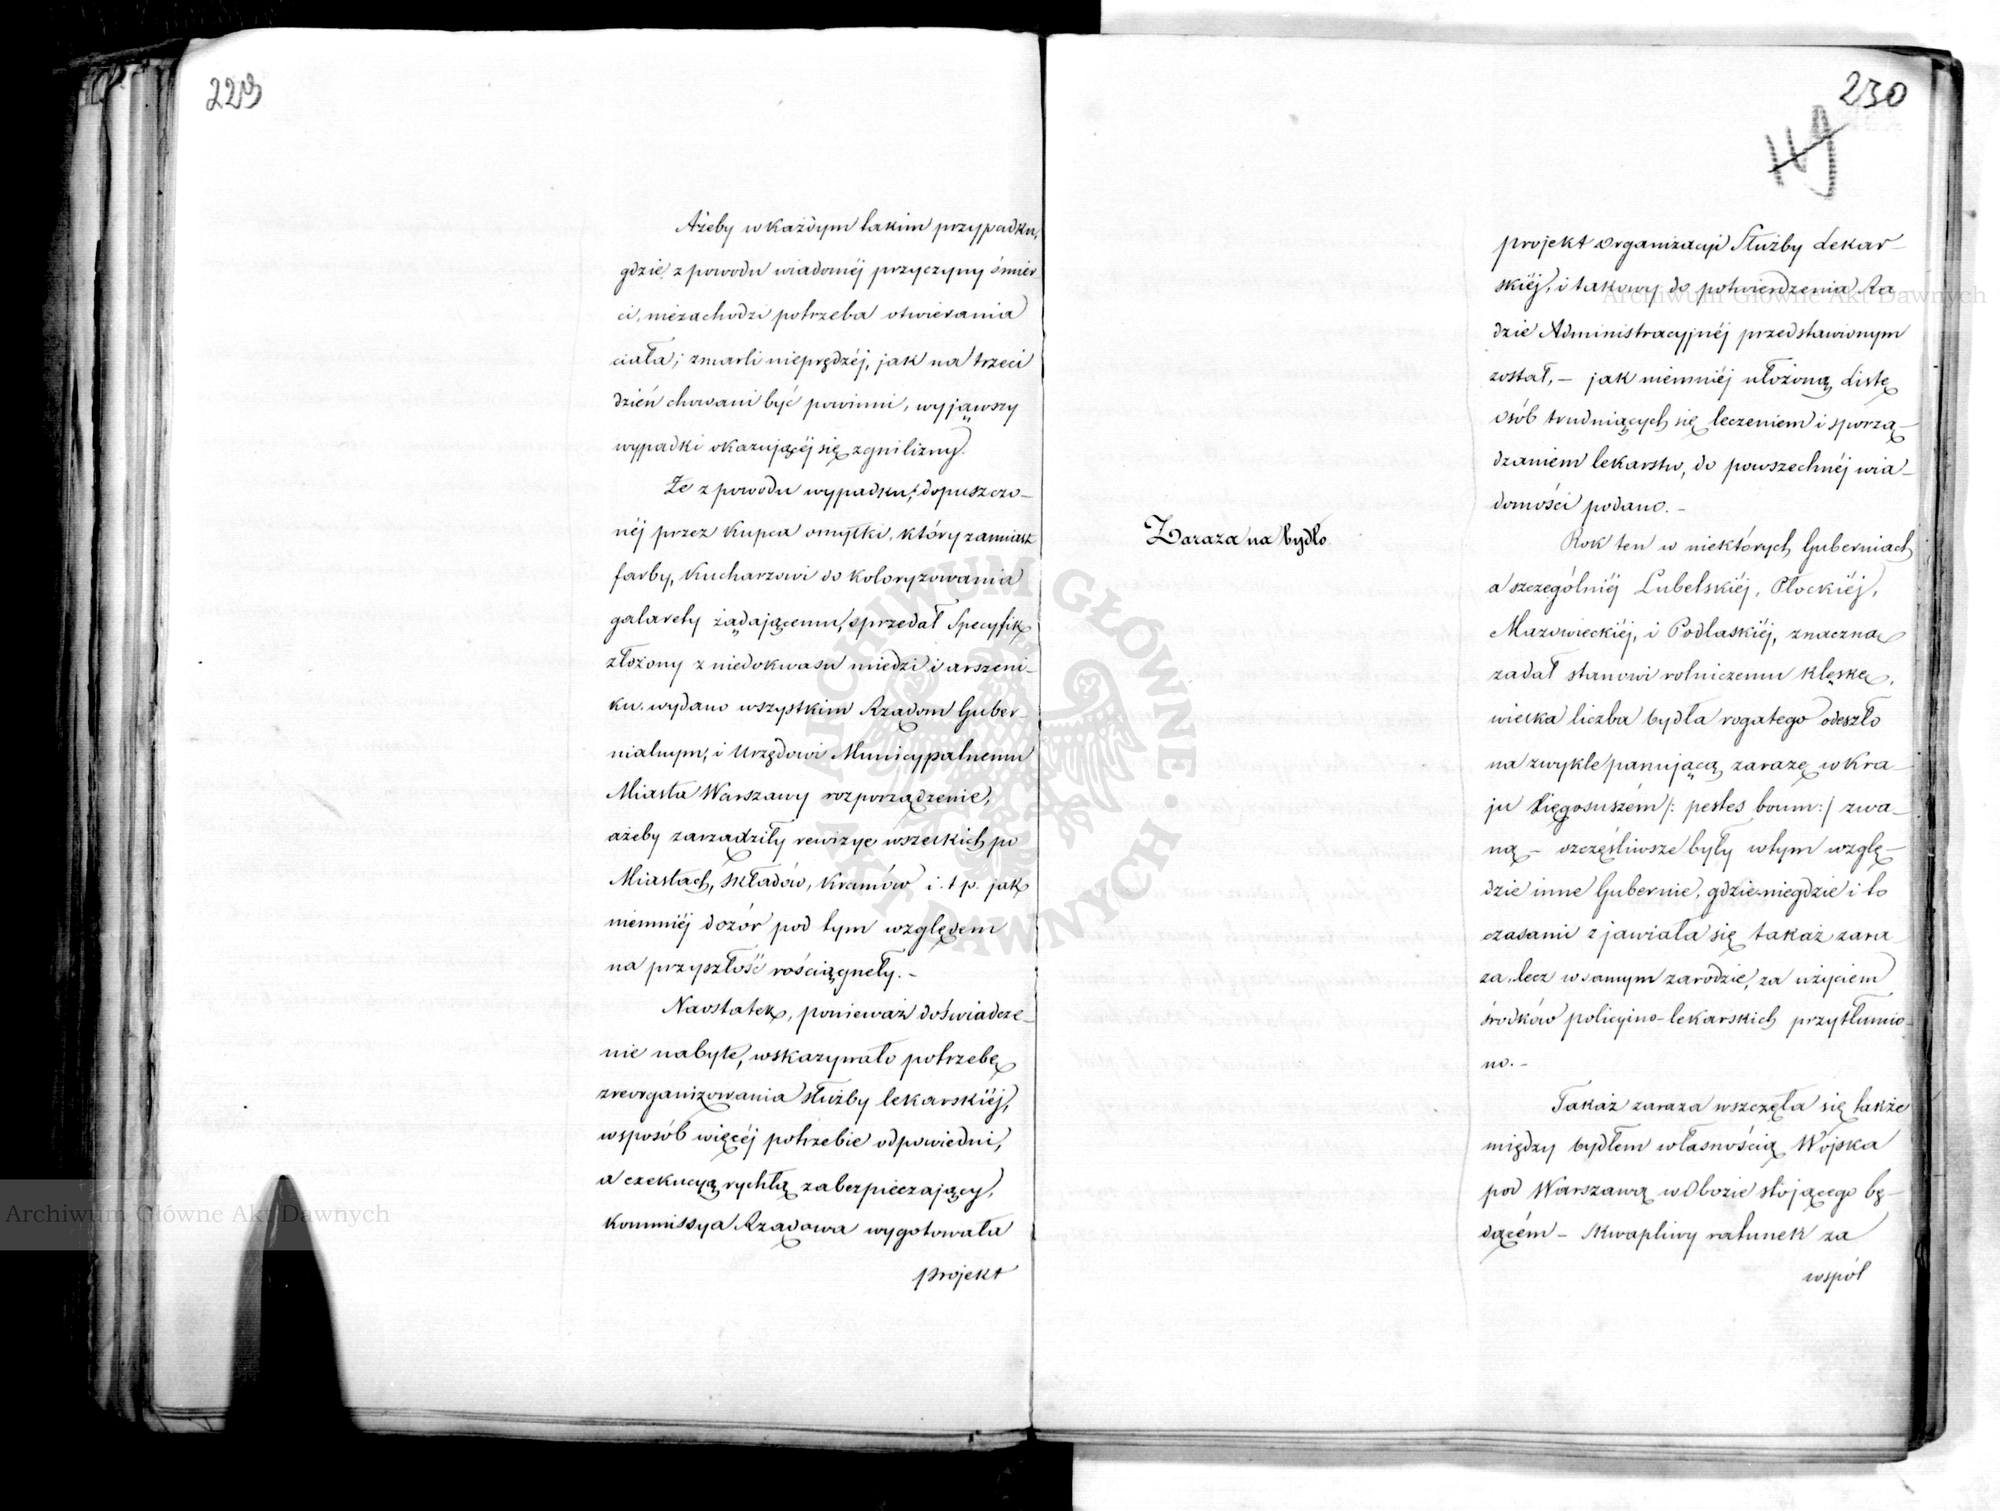 229
Ażeby w każdym takim przypadku,
gdzie z powodu wiadoméj przyczyny śmier
ci, niezachodzi potrzeba otwierania
ciała; zmarli nieprędzéj, jak na trzeci
dzień chowani być powinni, wyjąwszy
wypadki okazującéj się zgnilizny.
Że z powodu wypadku, dopuszczo-
néj przez Kupca omyłki, który zamiast
farby, Kucharzowi do koloryzowania
galarety żądającemu, sprzedał Specyfik
złożony z niedokwasu miedzi i arszeni-
ku. wydano wszystkim Rządom Guber-
nialnym, i Urzędowi Municypalnemu
Miasta Warszawy rozporządzenie,
ażeby zarządziły rewizye wszelkich po
Miastach, składów, kramów i. t p. jak
niemniéj dozór pod tym względem
na przyszłość rościągnęły. -
Naostatek, ponieważ doświadcze-
nie nabyte, wskazywało potrzebę
zreorganizowania służby lekarskiéj,
wsposób więcéj potrzebie odpowiedni,
a exekucyą rychłą zabezpieczający,
Kommissya Rządowa wygotowała
projekt
230
119
projekt organizacyi Służby Lekar-
skiéj, i takowy do potwierdzenia Ra
dzie Administracyjnéj przedstawionym
został, - jak niemniéj ułożoną Listę
osób trudniących się leczeniem i sporzą-
dzaniem lekarstw, do powszechnéj wia-
domości podano. -
Zaraza na bydło
Rok ten w niektórych Guberniach
a szczególniéj Lubelskiéj, Płockiéj,
Mazowieckiéj, i Podlaskiéj, znaczną
zadał stanowi rolniczemu klęskę,
wielka liczba bydła rogatego odeszło
na zwykle panującą zarazę w Kra-
ju Xięgosuszém /: pestes boum :/ zwa-
ną - szczęśliwsze były wtym wzglę-
dzie inne Gubernie, gdzie-niegdzie i to
czasami zjawiała się takaż zara-
za, lecz w samym zarodzie, za użyciem
środków policyjno-lekarskich przytłumio-
no. -
Takaż zaraza wszczęła się także
między bydłem własnością Wojska
pod Warszawą w Obozie stojącego bę-
dącém - skwapliwy ratunek za
współ
Archiwum Główne Akt Dawnych
Archiwum Główne Akt Dawnych
ARCHIWUM GŁÓWNE AKT DAWNYCH